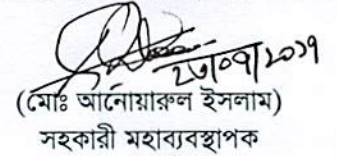 ২৩/০৭/২০১৭
(মোঃ আনোয়ারুল ইসলাম)
সহকারী মহাব্যবস্থাপক